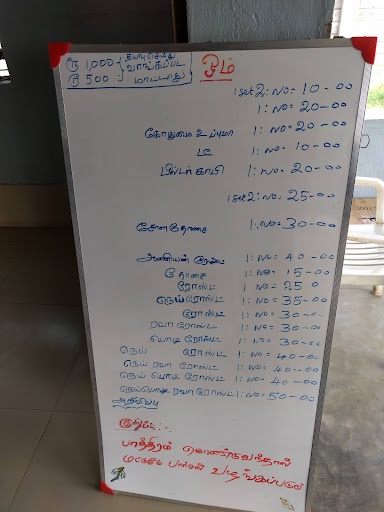 ரூ 1,000 { தயவுசெய்து
ரூ 500 { வாங்கப்பட மாட்டாது
ஓம்
1 set 2: NO= 10-00
1: NO= 20-00
கோதுமை உப்புமா 1: NO= 20-00
டீ 1: NO= 10-00
பில்டர் காபி 1: NO= 20-00
1 set 2: NO= 25-00
சோளதோசை 1: NO= 30-00
ஆனியன் ரோஸ்ட் 1: NO= 40-00
தோசை 1: NO= 15-00
ரோஸ்ட் 1: NO= 25 0
நெய் ரோஸ்ட் 1: NO= 35-00
ரோஸ்ட் 1: NO= 30-00
ரவா ரோஸ்ட் 1: NO= 30-00
பொடி ரோஸ்ட் 1: NO= 30-00
நெய் ரோஸ்ட் 1: NO= 40-00
நெய் ரவா ரோஸ்ட் 1: NO= 40-00
நெய் பொடி ரோஸ்ட் 1: NO= 40-00
நெய்பொடி ரவாரோஸ்ட் 1: NO= 50-00
அறிவிப்பு
குறிப்பு:-
பாத்திரம் கொண்டுவந்தால்
மட்டுமே பார்சல் வழங்கப்படும்